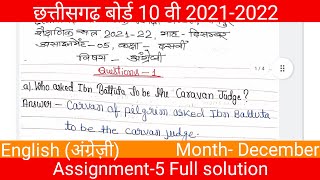 छत्तीसगढ़ बोर्ड 10 वी 2021-2022
शैक्षणिक सत्र 2021-22, माह - दिसम्बर
असाइनमेंट-05, कक्षा - दसवीं
विषय - अंग्रेजी
Questions-1
a) Who asked Ibn Battuta to be the Caravan Judge?
Answer - Carvan of pilgrim asked Ibn Battuta
to be the carvan judge.
English (अंग्रेज़ी) Month- December
Assignment-5 Full solution